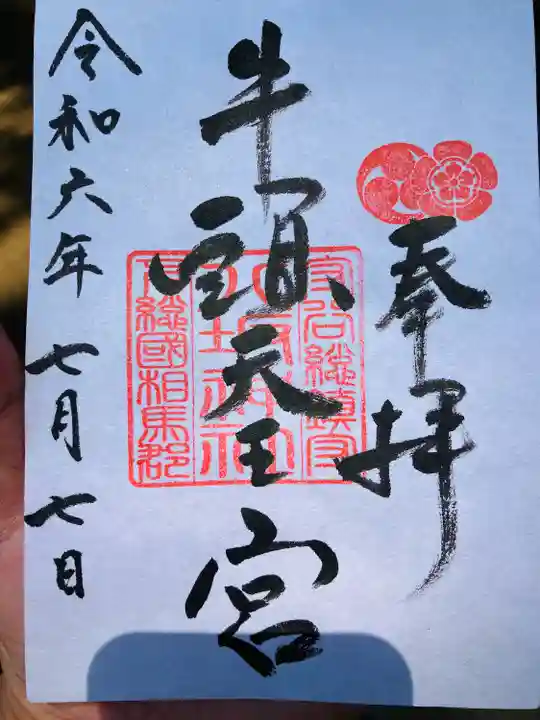 奉拝
牛頭天王宮
守谷総鎮守
八坂神社
下総國相馬郡
令和六年 七月 七日